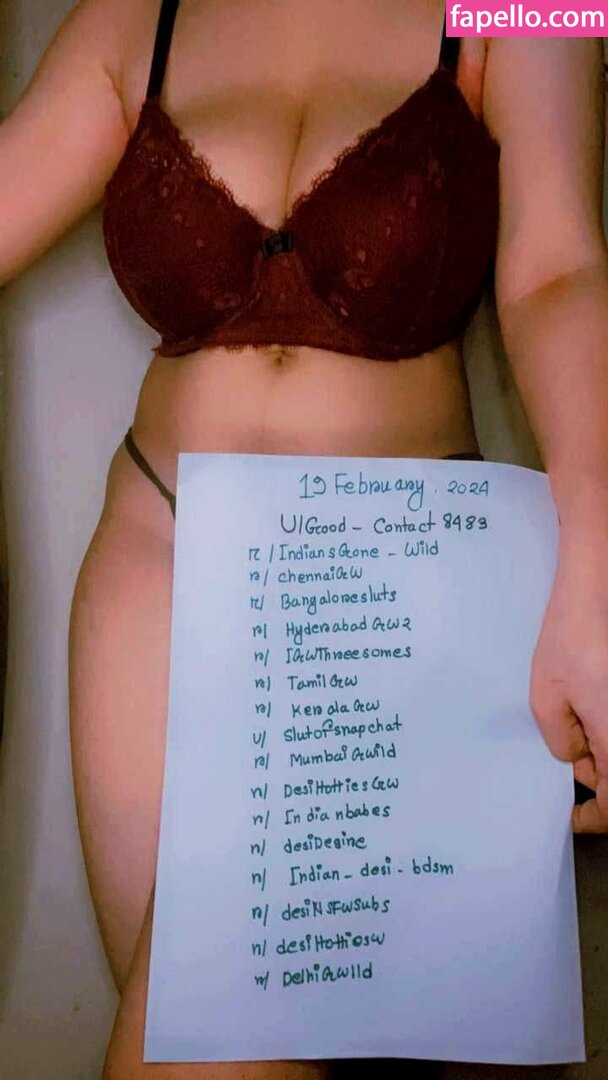 fapello.com
19 February. 2024
U/Good - Contact 8483
r/IndiansGone - Wild
r/chennaiGW
r/ Bangaloresluts
r/ Hyderabad GW2
r/ IGWThreesomes
r/ Tamil GW
r/ Kerala GW
u/ Slutofsnapchat
r/ Mumbai GWild
r/ DesiHottiesGW
r/ Indianbabes
r/ desiDesire
r/ Indian_desi - bdsm
r/ desiNSFWSubs
r/ desiHottiesw
r/ DelhiGWild